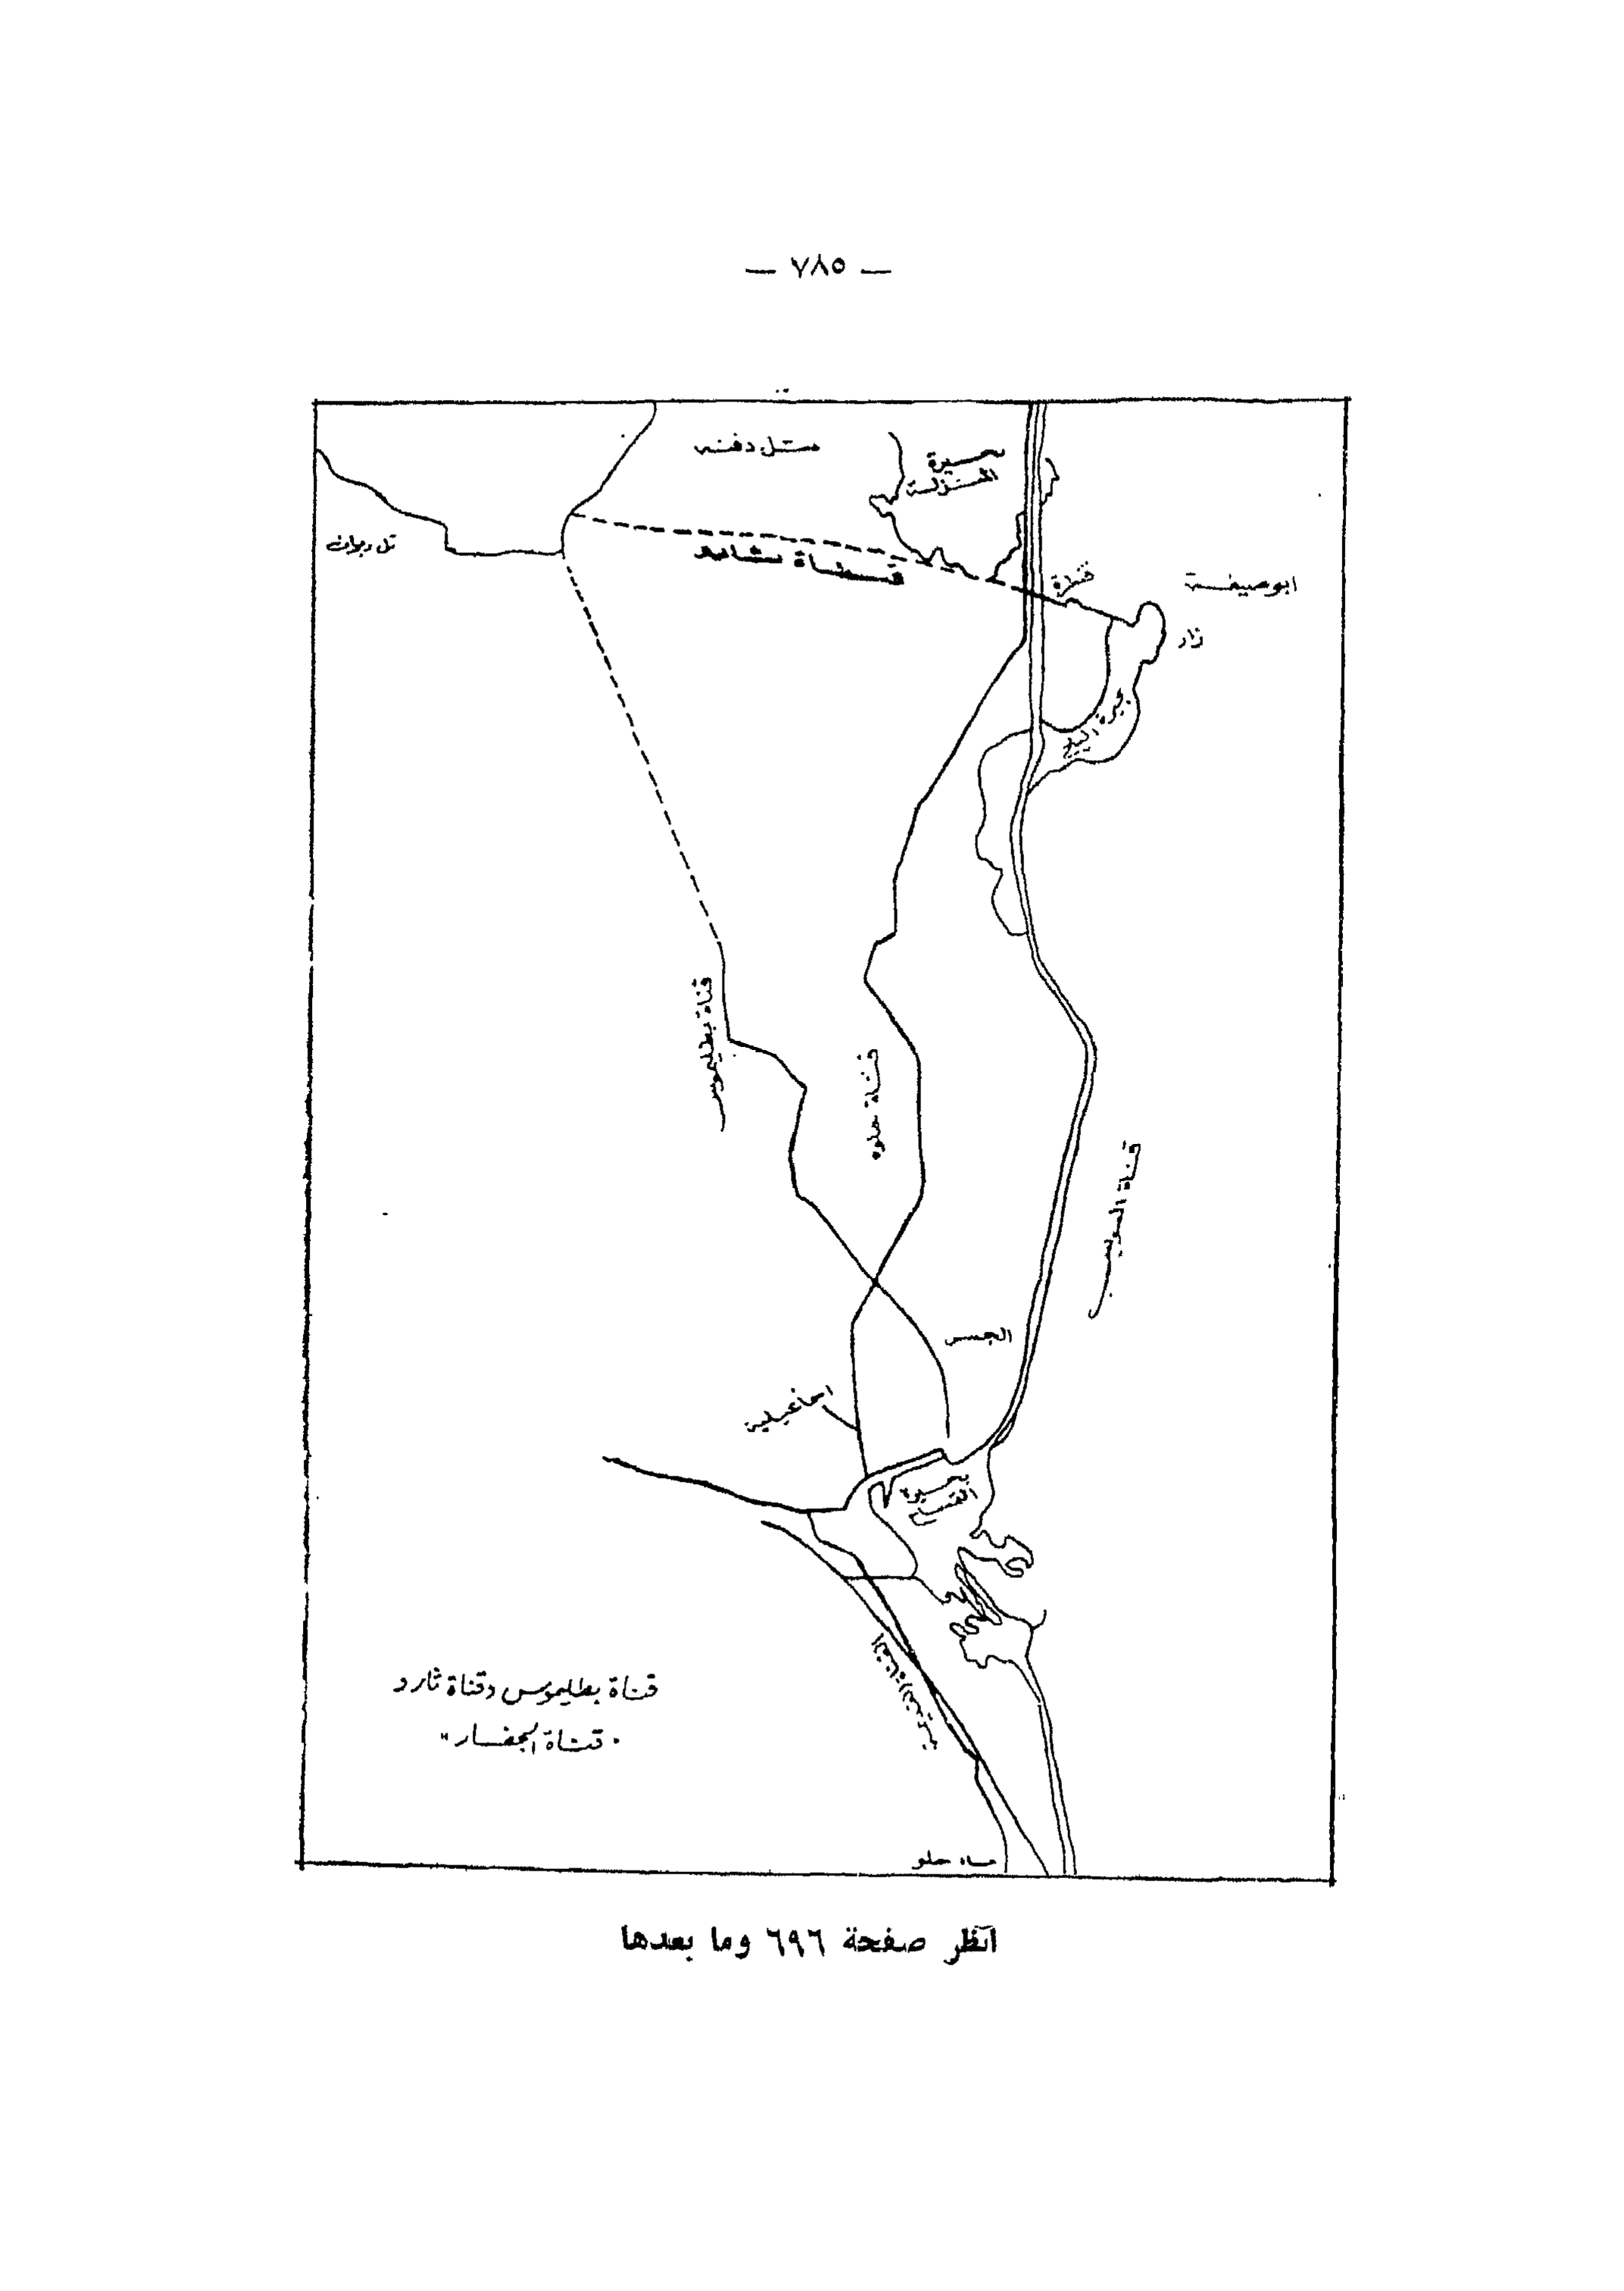 — ٧٨٥ —
تل دفنه
بحيرة
المنزلة
تل
قنطرة
ابو صيفة
ثارد
بحيرة البلح
قناة بطليموس
قناة حلوه
قناة السويس
الجسر
اسماعيلية
بحيرة
التمساح
قناة بطليموس وقناة ثارد
" قناة الجفار "
مياه حلو
انظر صفحة ٦٩٦ وما بعدها